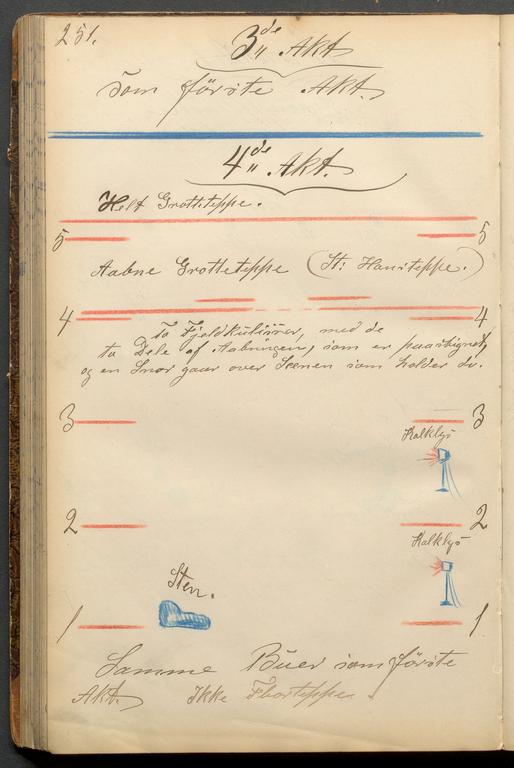 251.
3de Akt
som förste Akt.
4de Akt.
Helt Grotteteppe.
5 5
Aabne Grotteteppe (St: Hansteppe.)
4 4
to Fjeldkulisser, med de
to Dele af Aabningen, som er paasignet,
og en Snor gaar over Scenen som holder de.
3 3
Kalklys
2 2
Kalklys
Sten.
1 1
Samme Buer som förste
Akt. Ikke